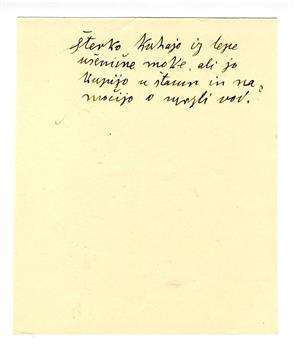 šterko kuhajo iz lepe
ušenične moke, ali jo
kupijo u štacun in na-
močijo o mrzli vod.